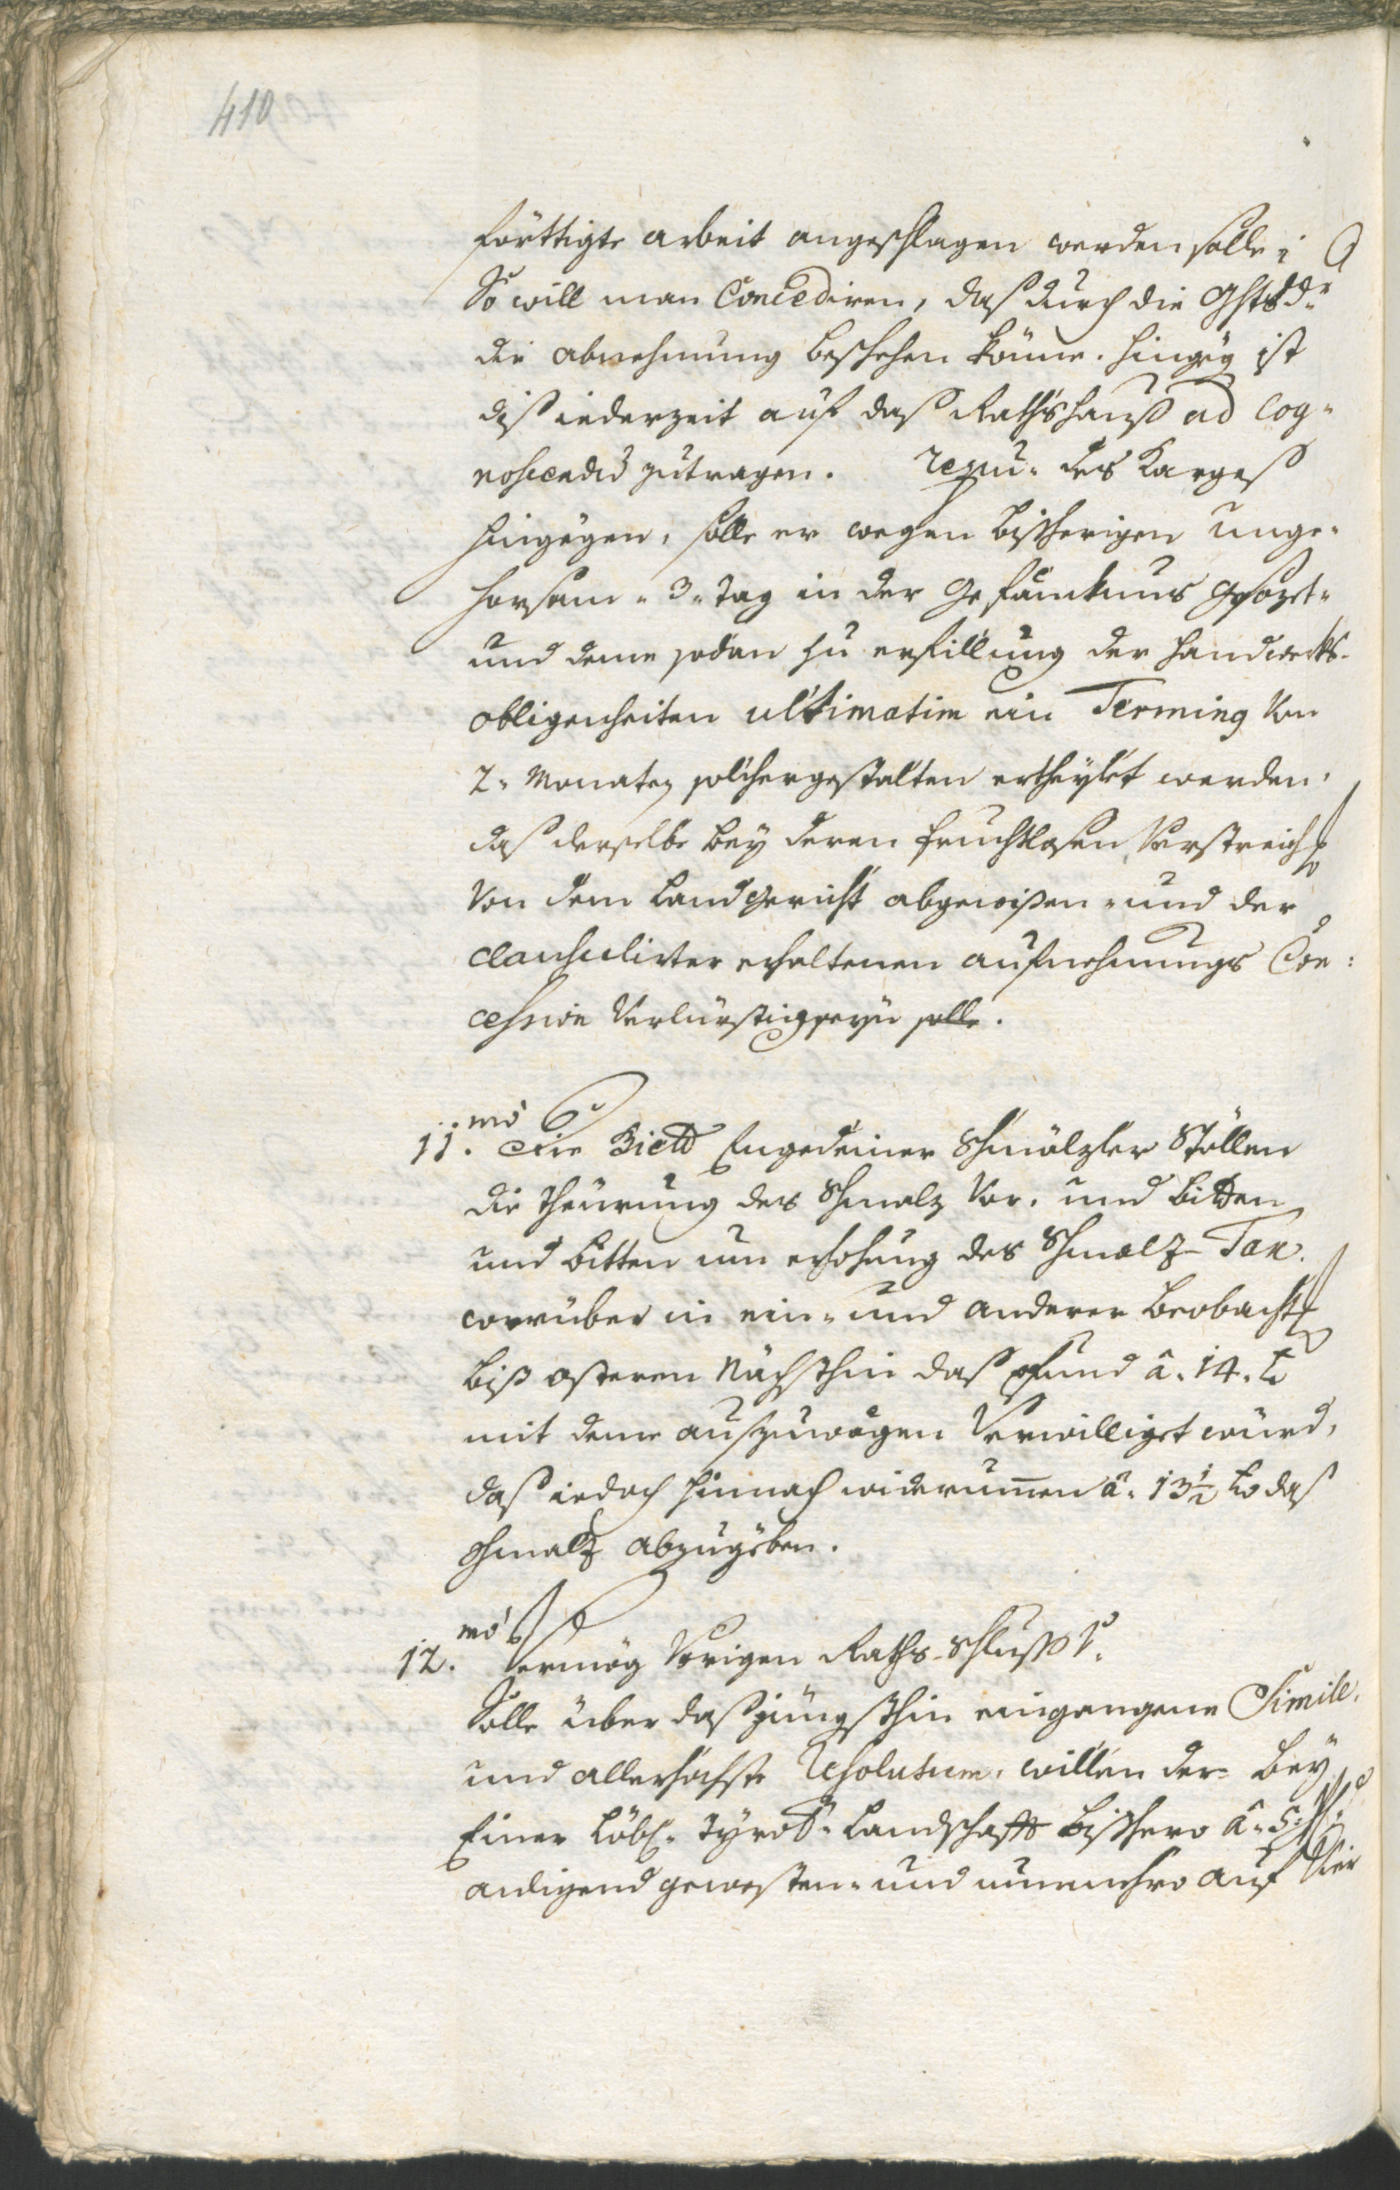 410
förttigte arbeit angeschlagen werden solle;
So will man Concediren, daß durch die
die abnehmung beschehen könne. hingeg ist
diß iederzeit auf daß Rathshauß ad cog-
noscendū zutragen. des Karges
hingegen, solle er wegen bißherigen unge-
horsam - 3 - Tag in der Gefäncknus gesözt-
und deme sodan zu erfillung der handwerks-
obligenheiten ultimatim ein Terming von
2. Monaten solchergestalten ertheylet werden,
daß derselbe bey deren fruchtlosen Verstreich
Von dem Landgericht abgewißen - und der
clausulirter erhaltenen aufnehmungs Con-
cession Verlürstig seyn solle.
11.mo Die Engedeiner Schmölzler Stöllen
die theürung des Schmalz Vor, und bitten
und bitten um erhohung des Schmalz-Tax.
worüber in ein- und anderer beobacht
biß osteren nächsthin daß pfund â. 14. xr
mit deme außzuwögen Verwilliget würd,
daß iedoch hinnach widerumen â. 13½ xr daß
schmalz abzugeben.
12.mo Vermög Vorigen Raths-Schluß
Solle über daß jüngsthin eingangene Simile
und allerhöchste Resolution, willen der bey
Einer Löbl. Tyrol. Landschafft bißhero â 5
anligend gewesten - und nunmehro auf Vier